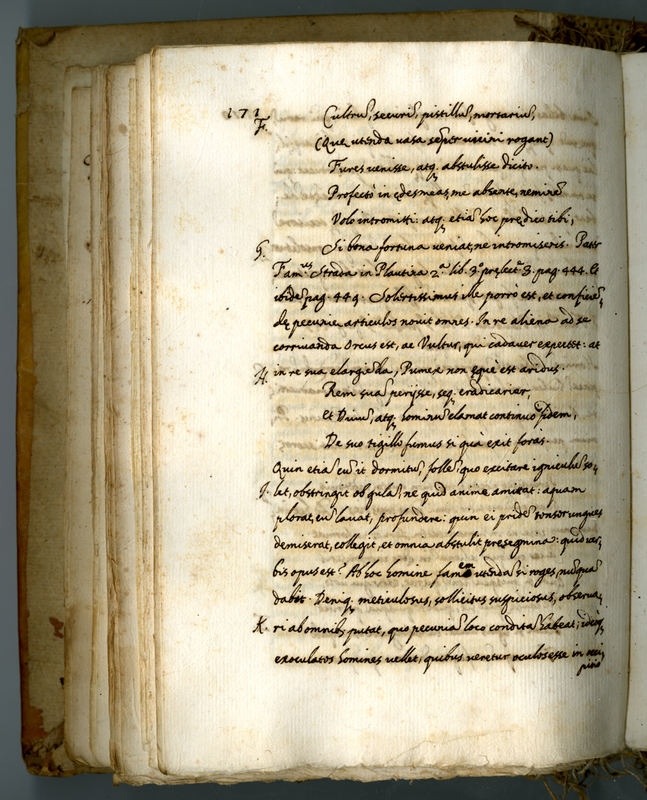 171 Cultrũ, securĩ, pistillũ, mortariũ,
F. (Quę utenda vasa semper vicini rogant)
Fures venisse, atq; abstulisse dicito.
Profectò in ędes meas, me absente, neminẽ
Volo intromitti: atq; etiã hoc prędico tibi,
G. Si bona fortuna veniat, ne intromiseris. Patr
Fam.us Strada in Plautina 2.a lib. 3.o pręlect. 3. pag. 444. et
ibidẽ pag. 449. Solertissimus ille porrò est, et conficiẽ,
dę pecunię articulos novit omnes. In re aliena ad se
corrivanda Orcus est, ac Vultur, qui cadaver expectat: at
H. in re sua elargiẽda, Pumex non ęquè est aridus.
Rem suã perijsse, seq; eradicarier,
et Divũ, atq; hominũ clamat continuo fidem,
De suo tigillo fumus si quà exit foras.
Quin etiã cũ it dormitũ, follẽ, quo excitare igniculũ so,
I. let, obstringit ob gulã, ne quid animę amittat: aquam
plorat, cũ lavat, profundere: quin ei pridẽ tonsor ungues
demiserat, collegit, et omnia abstulit pręsegmina: quid ver,
bis opus est? Ab hoc homine famem utendã si roges, nunquã
dabit. Deniq; meticulosus, sollicitus suspiciosus, observa,
K. ri ab omnibs putat, quo pecuniã loco conditã habeat; ideoq;
exoculatos homines vellet, quibus veretur oculos esse in occi,
pitio